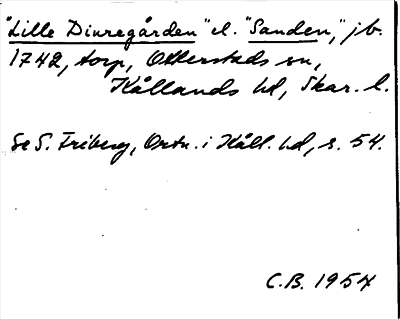 "Lille Diuregården" el. "Sanden", jb.
1742, torp, Otterstads sn,
Kållands hd, Skar. l.
Se S. Friberg, Ortn. i Kåll. hd, s. 54.
C.B. 1954